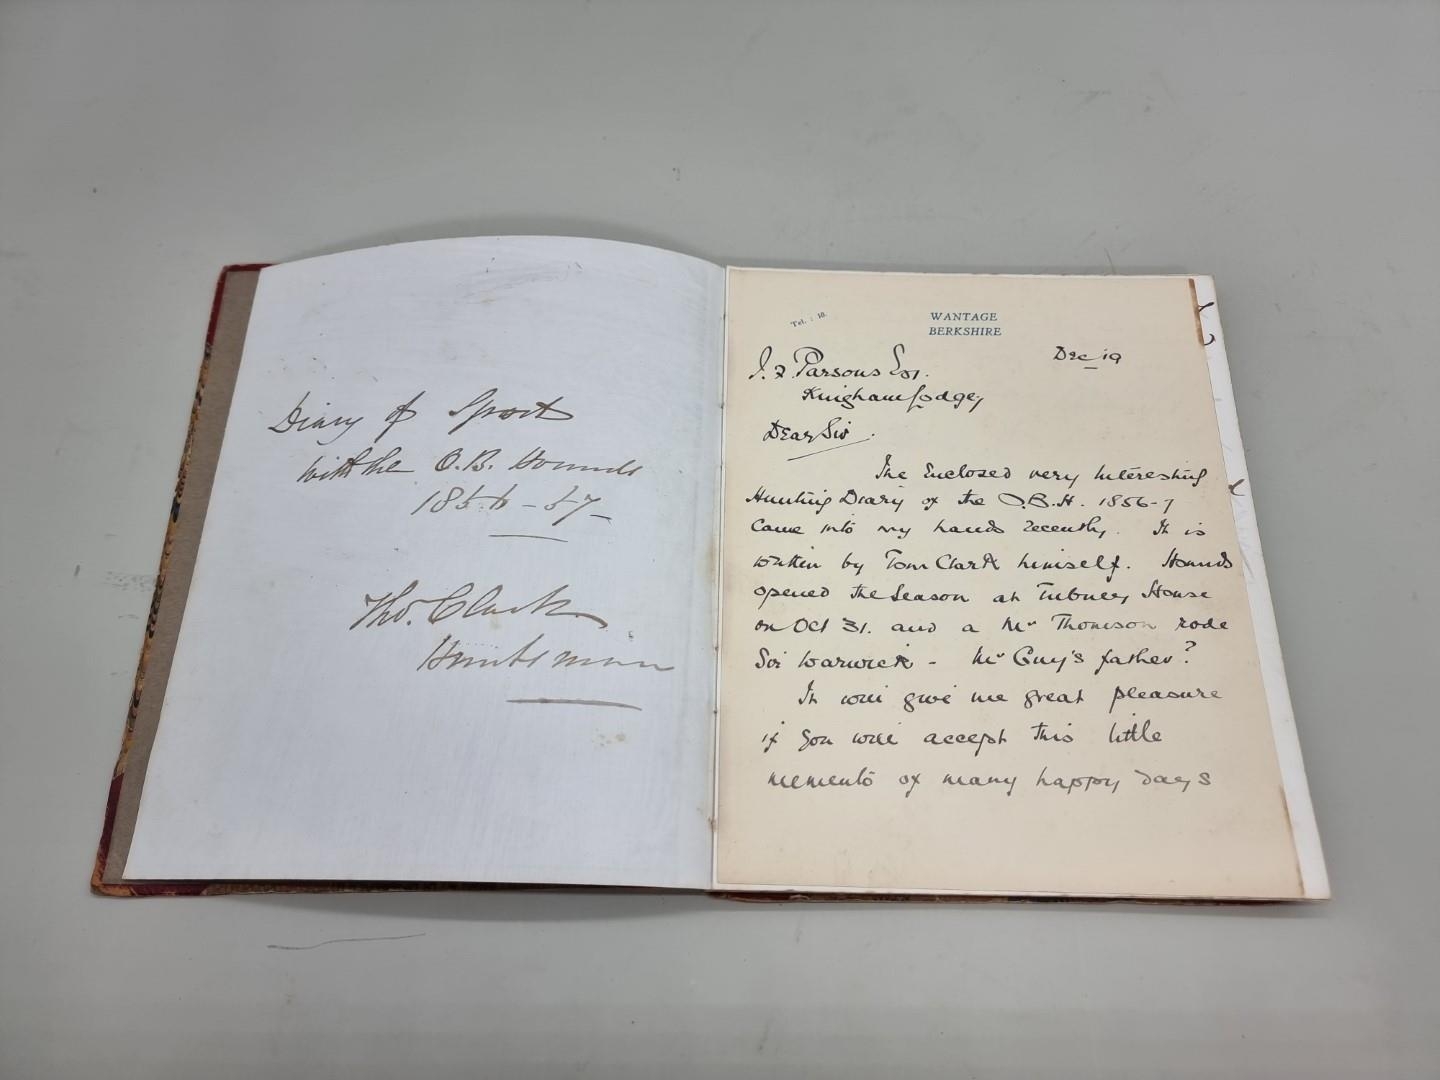 Diary of Sport
with the O.B. Hounds
1856-57
Tho. Clark
Huntsman
Tel. : 10.
WANTAGE
BERKSHIRE
Dec 19
J. F Parsons Esq.
Kingham Lodge,
Dear Sir.
The Enclosed very Interesting
Hunting Diary of the O.B.H. 1856-7
Came into my hands recently. It is
written by Tom Clark himself. Hounds
opened the Season at Tubney House
on Oct 31. and a Mr Thomson rode
Sir Warwick - Mr Guy's father?
It will give me great pleasure
if you will accept this little
memento of many happy days